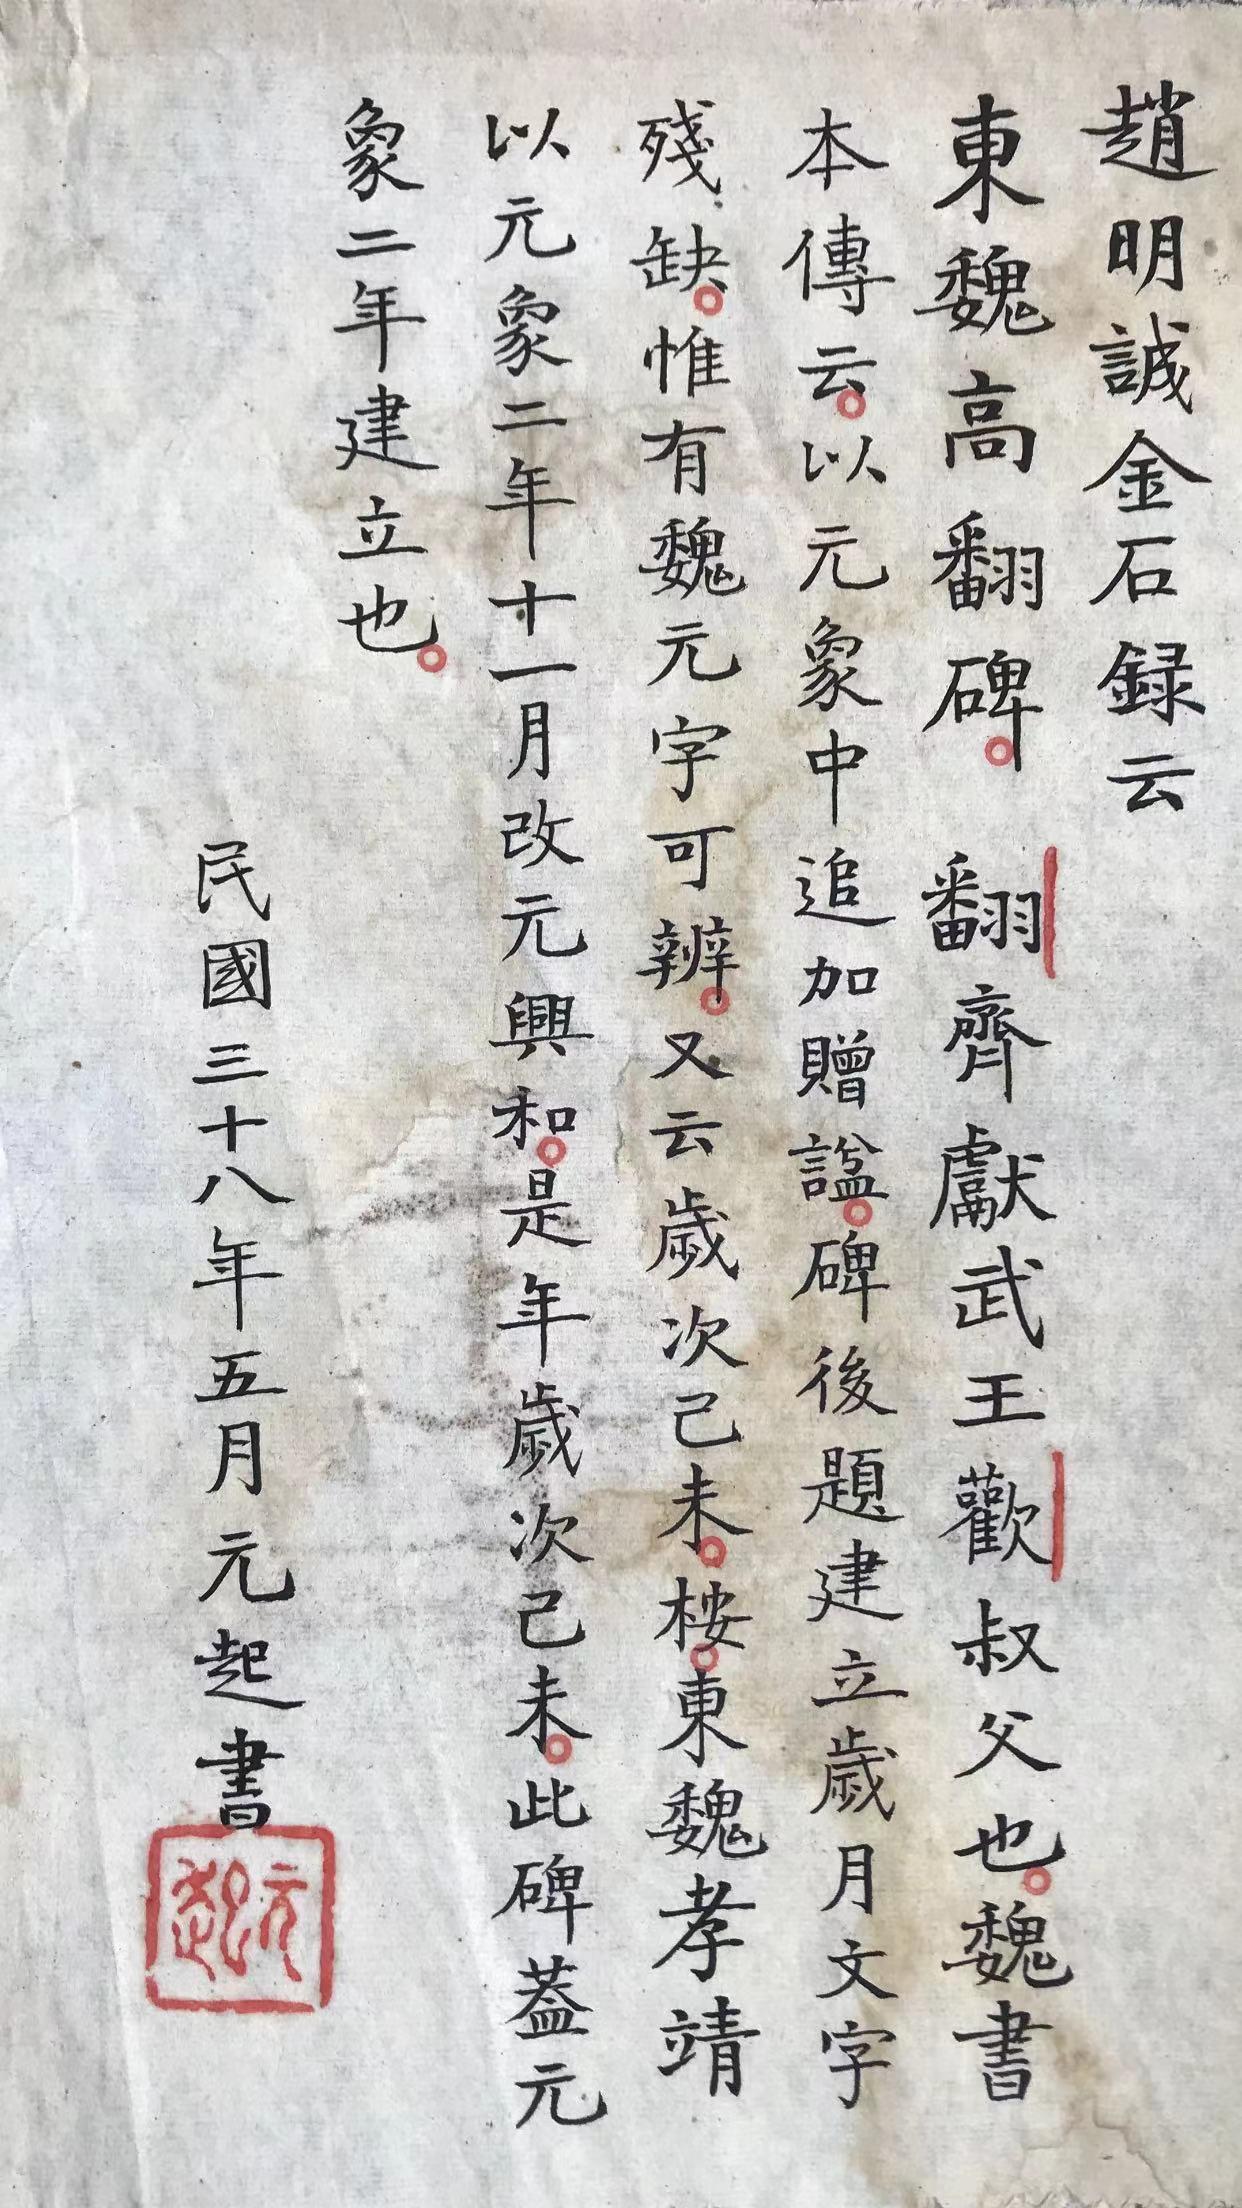 趙明誠金石録云
東魏高翻碑。翻齊獻武王歡叔父也。魏書
本傳云。以元象中追加贈諡。碑後題建立歲月文字
殘缺。惟有魏元字可辨。又云歲次己未。桉。東魏孝靖
以元象二年十一月改元興和。是年歲次己未。此碑葢元
象二年建立也。
民國三十八年五月元起書
元起